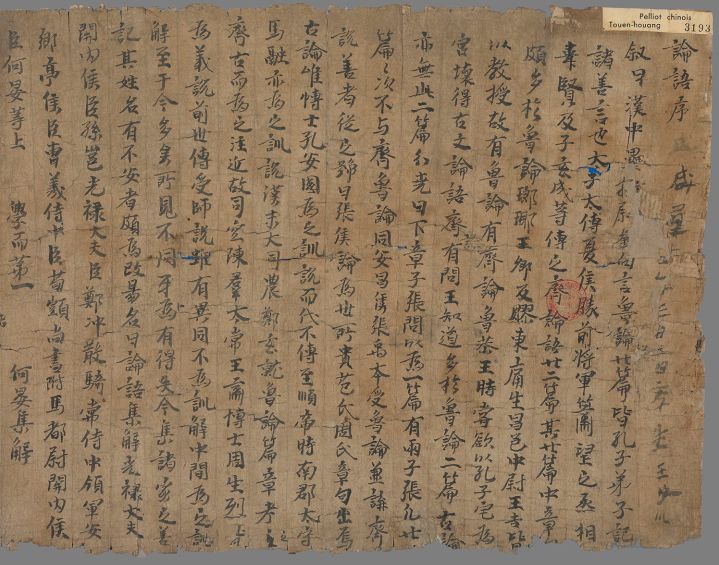 Pelliot chinois
Touen-houang
3193
論語序
叙曰漢中壘尉向言魯論廿篇皆孔子弟子記
諸善言也太子太傅夏侯勝前將軍蕭望之丞相
韋賢及子玄成等傳之齊論語廿二篇其廿篇中章
頗多於魯論瑯瑘王卿及膠東庸生昌邑中尉王吉皆
以教授故有魯論有齊論魯恭王時嘗欲以孔子宅為
宮壞得古文論語齊有問王知道多於魯論二篇古論
亦無此二篇分堯曰下章子張問以為一篇有兩子張凡廿
篇〻次不与齊魯論同安昌侯張禹本受魯論兼講齊
說善者從之號曰張侯論為世所貴苞氏周氏章句出焉
古論唯博士孔安國為之訓說而代不傳至順帝時南郡太守
馬融亦為之訓說漢末大司農鄭玄就魯論篇章考之
齊古而為之注近故司空陳羣太常王肅博士周生烈皆
為義說前世傳受師說雖有異同不為訓解中間為之訓
解至于今多矣所見不同乎為有得失今集諸家之善
記其姓名有不安者頗為改易名曰論語集解光祿大夫
開內侯臣孫邕光祿大夫臣鄭沖散騎常侍中領軍安
鄉高侯臣曹羲侍中臣荀顗尚書附馬都尉開內侯
臣何晏等上 學而第一 何晏集解